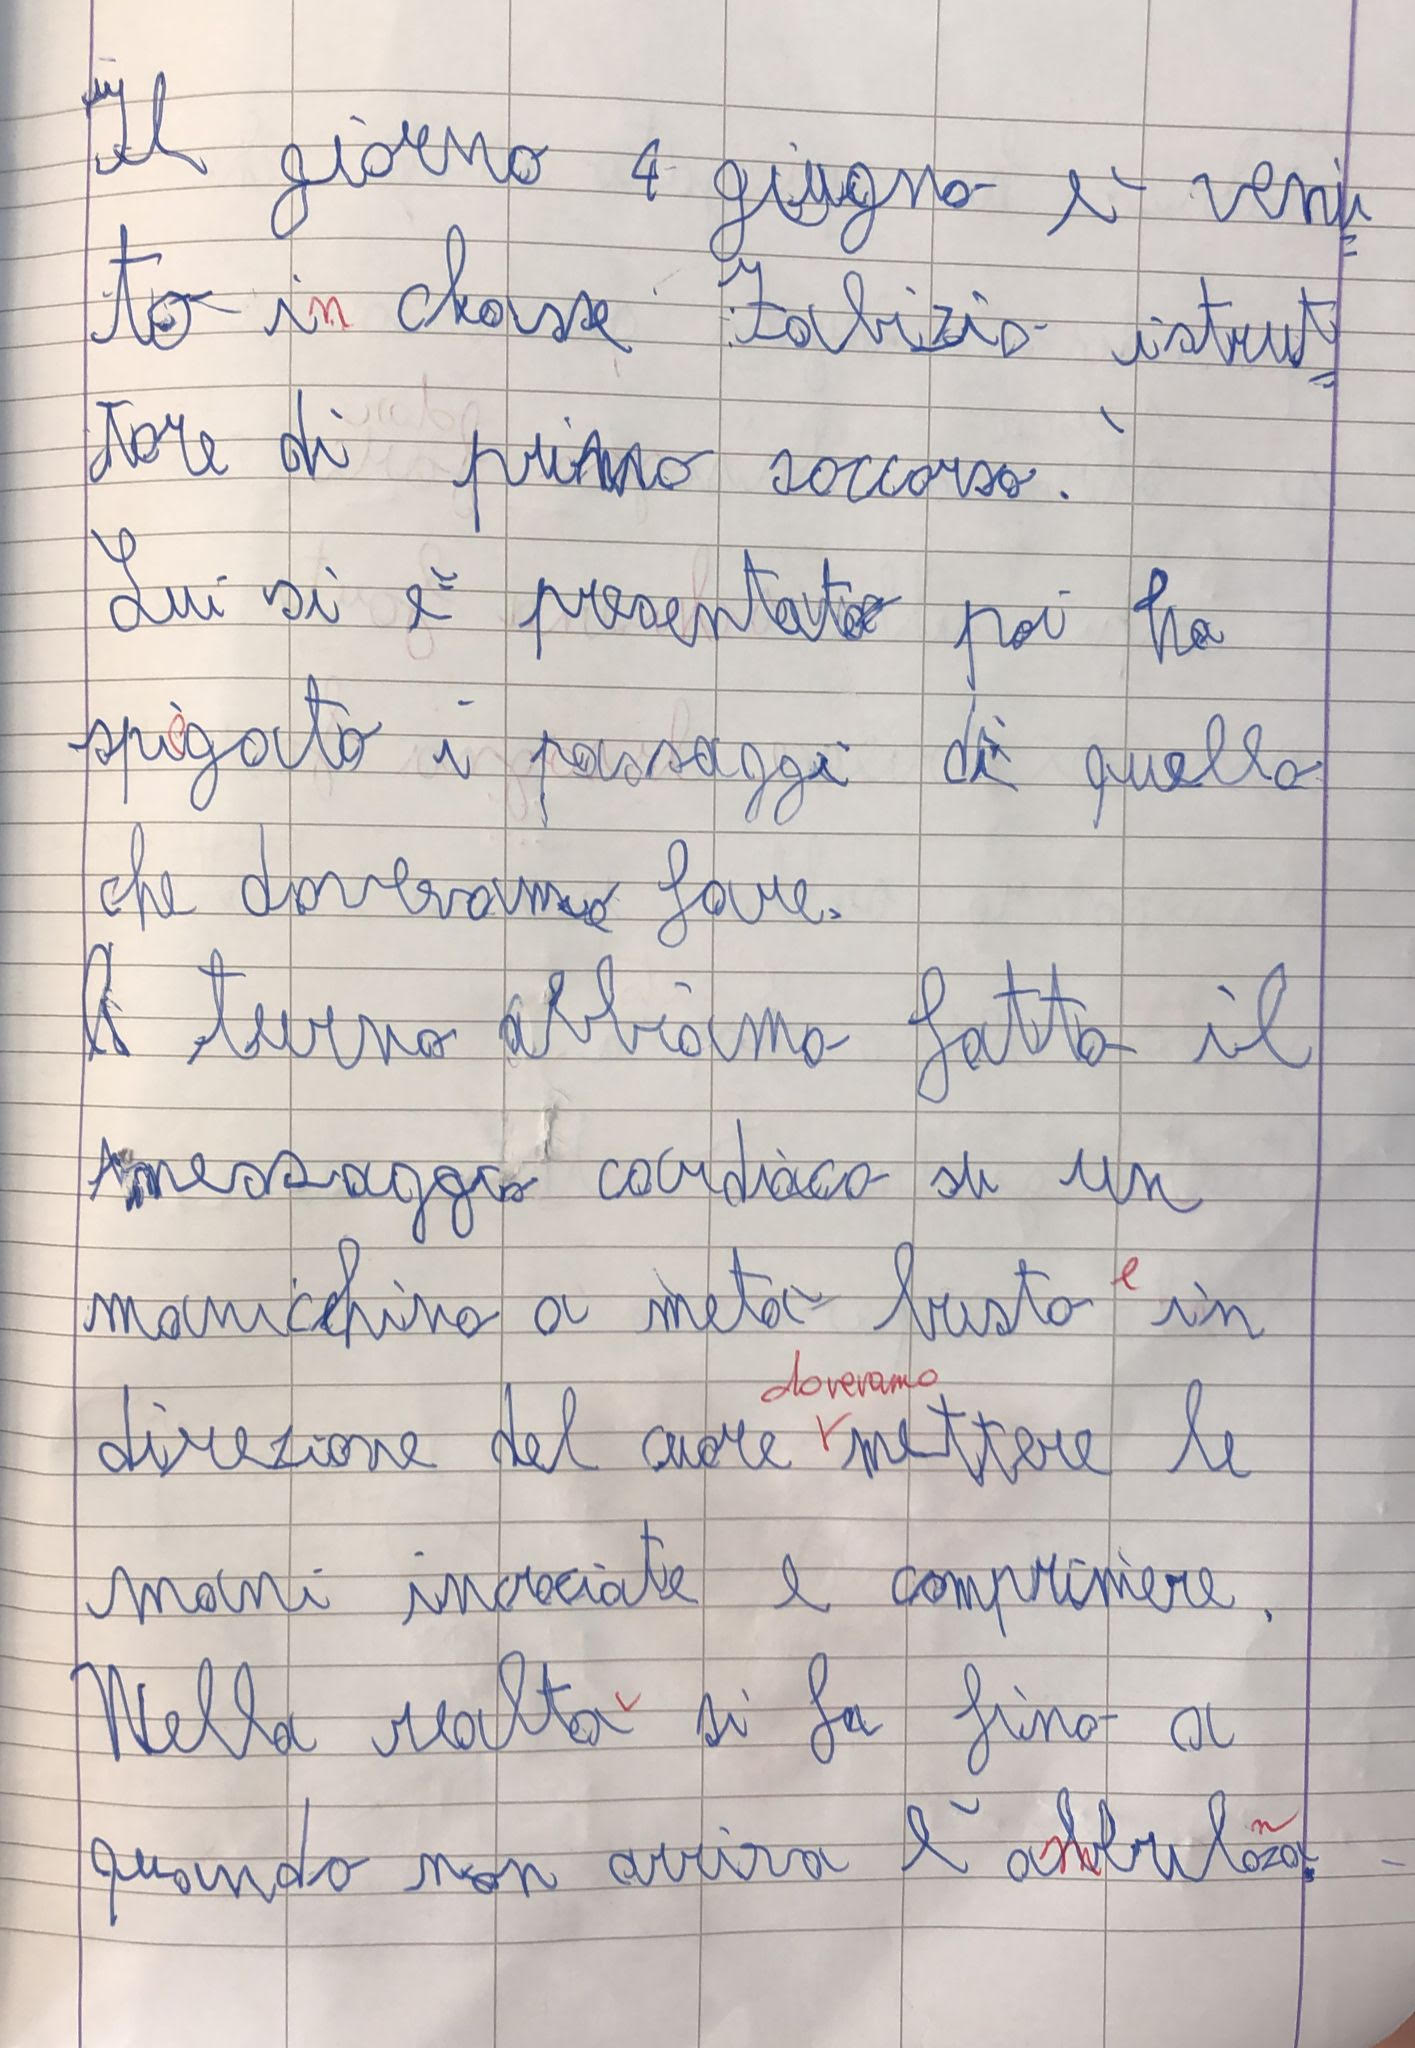 Il giorno 4 giugno è venu=
to in classe Fabizio istrut=
tore di primo soccorso.
Lui si è presentato poi ha
spiegato i passaggi di quello
che dovevamo fare.
A turno abbiamo fatto il
messaggio cardiaco su un
manichino a metà busto e in
direzione del cuore dovevamo mettere le
mani incrociate e comprimere.
Nella realtà si fa fino a
quando non arriva l' ambulanza.